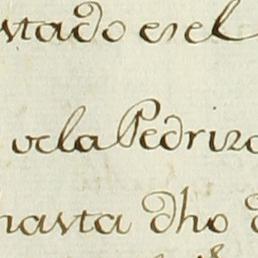 vtado en el
de la Pedriza
hasta dho d